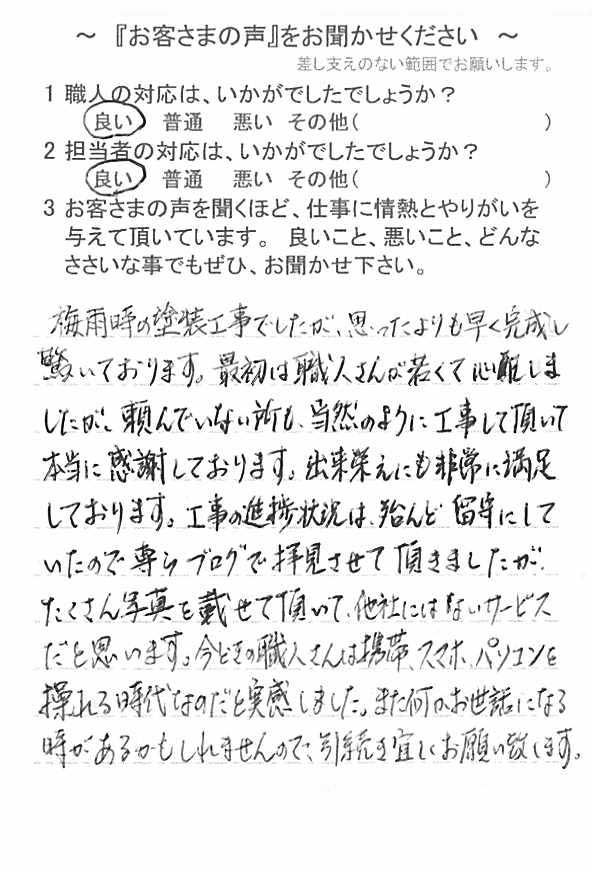 ～ 『お客さまの声』をお聞かせください ～
差し支えのない範囲でお願いします。
1 職人の対応は、いかがでしたでしょうか？
良い 普通 悪い その他( )
2 担当者の対応は、いかがでしたでしょうか？
良い 普通 悪い その他( )
3 お客さまの声を聞くほど、仕事に情熱とやりがいを
与えて頂いています。 良いこと、悪いこと、どんな
ささいな事でもぜひ、お聞かせ下さい。
梅雨時の塗装工事でしたが、思ったよりも早く完成し
驚いております。最初は職人さんが若くて心配しま
したが、頼んでいない所も、当然のように工事して頂いて
本当に感謝しております。出来栄えにも非常に満足
しております。工事の進捗状況は、殆んど留守にして
いたので専らブログで拝見させて頂きましたが、
たくさん写真を載せて頂いて、他社にはないサービス
だと思います。今どきの職人さんは携帯、スマホ、パソコンを
操れる時代なのだと実感しました。また何かお世話になる
時があるかもしれませんので、引続き宜しくお願い致します。